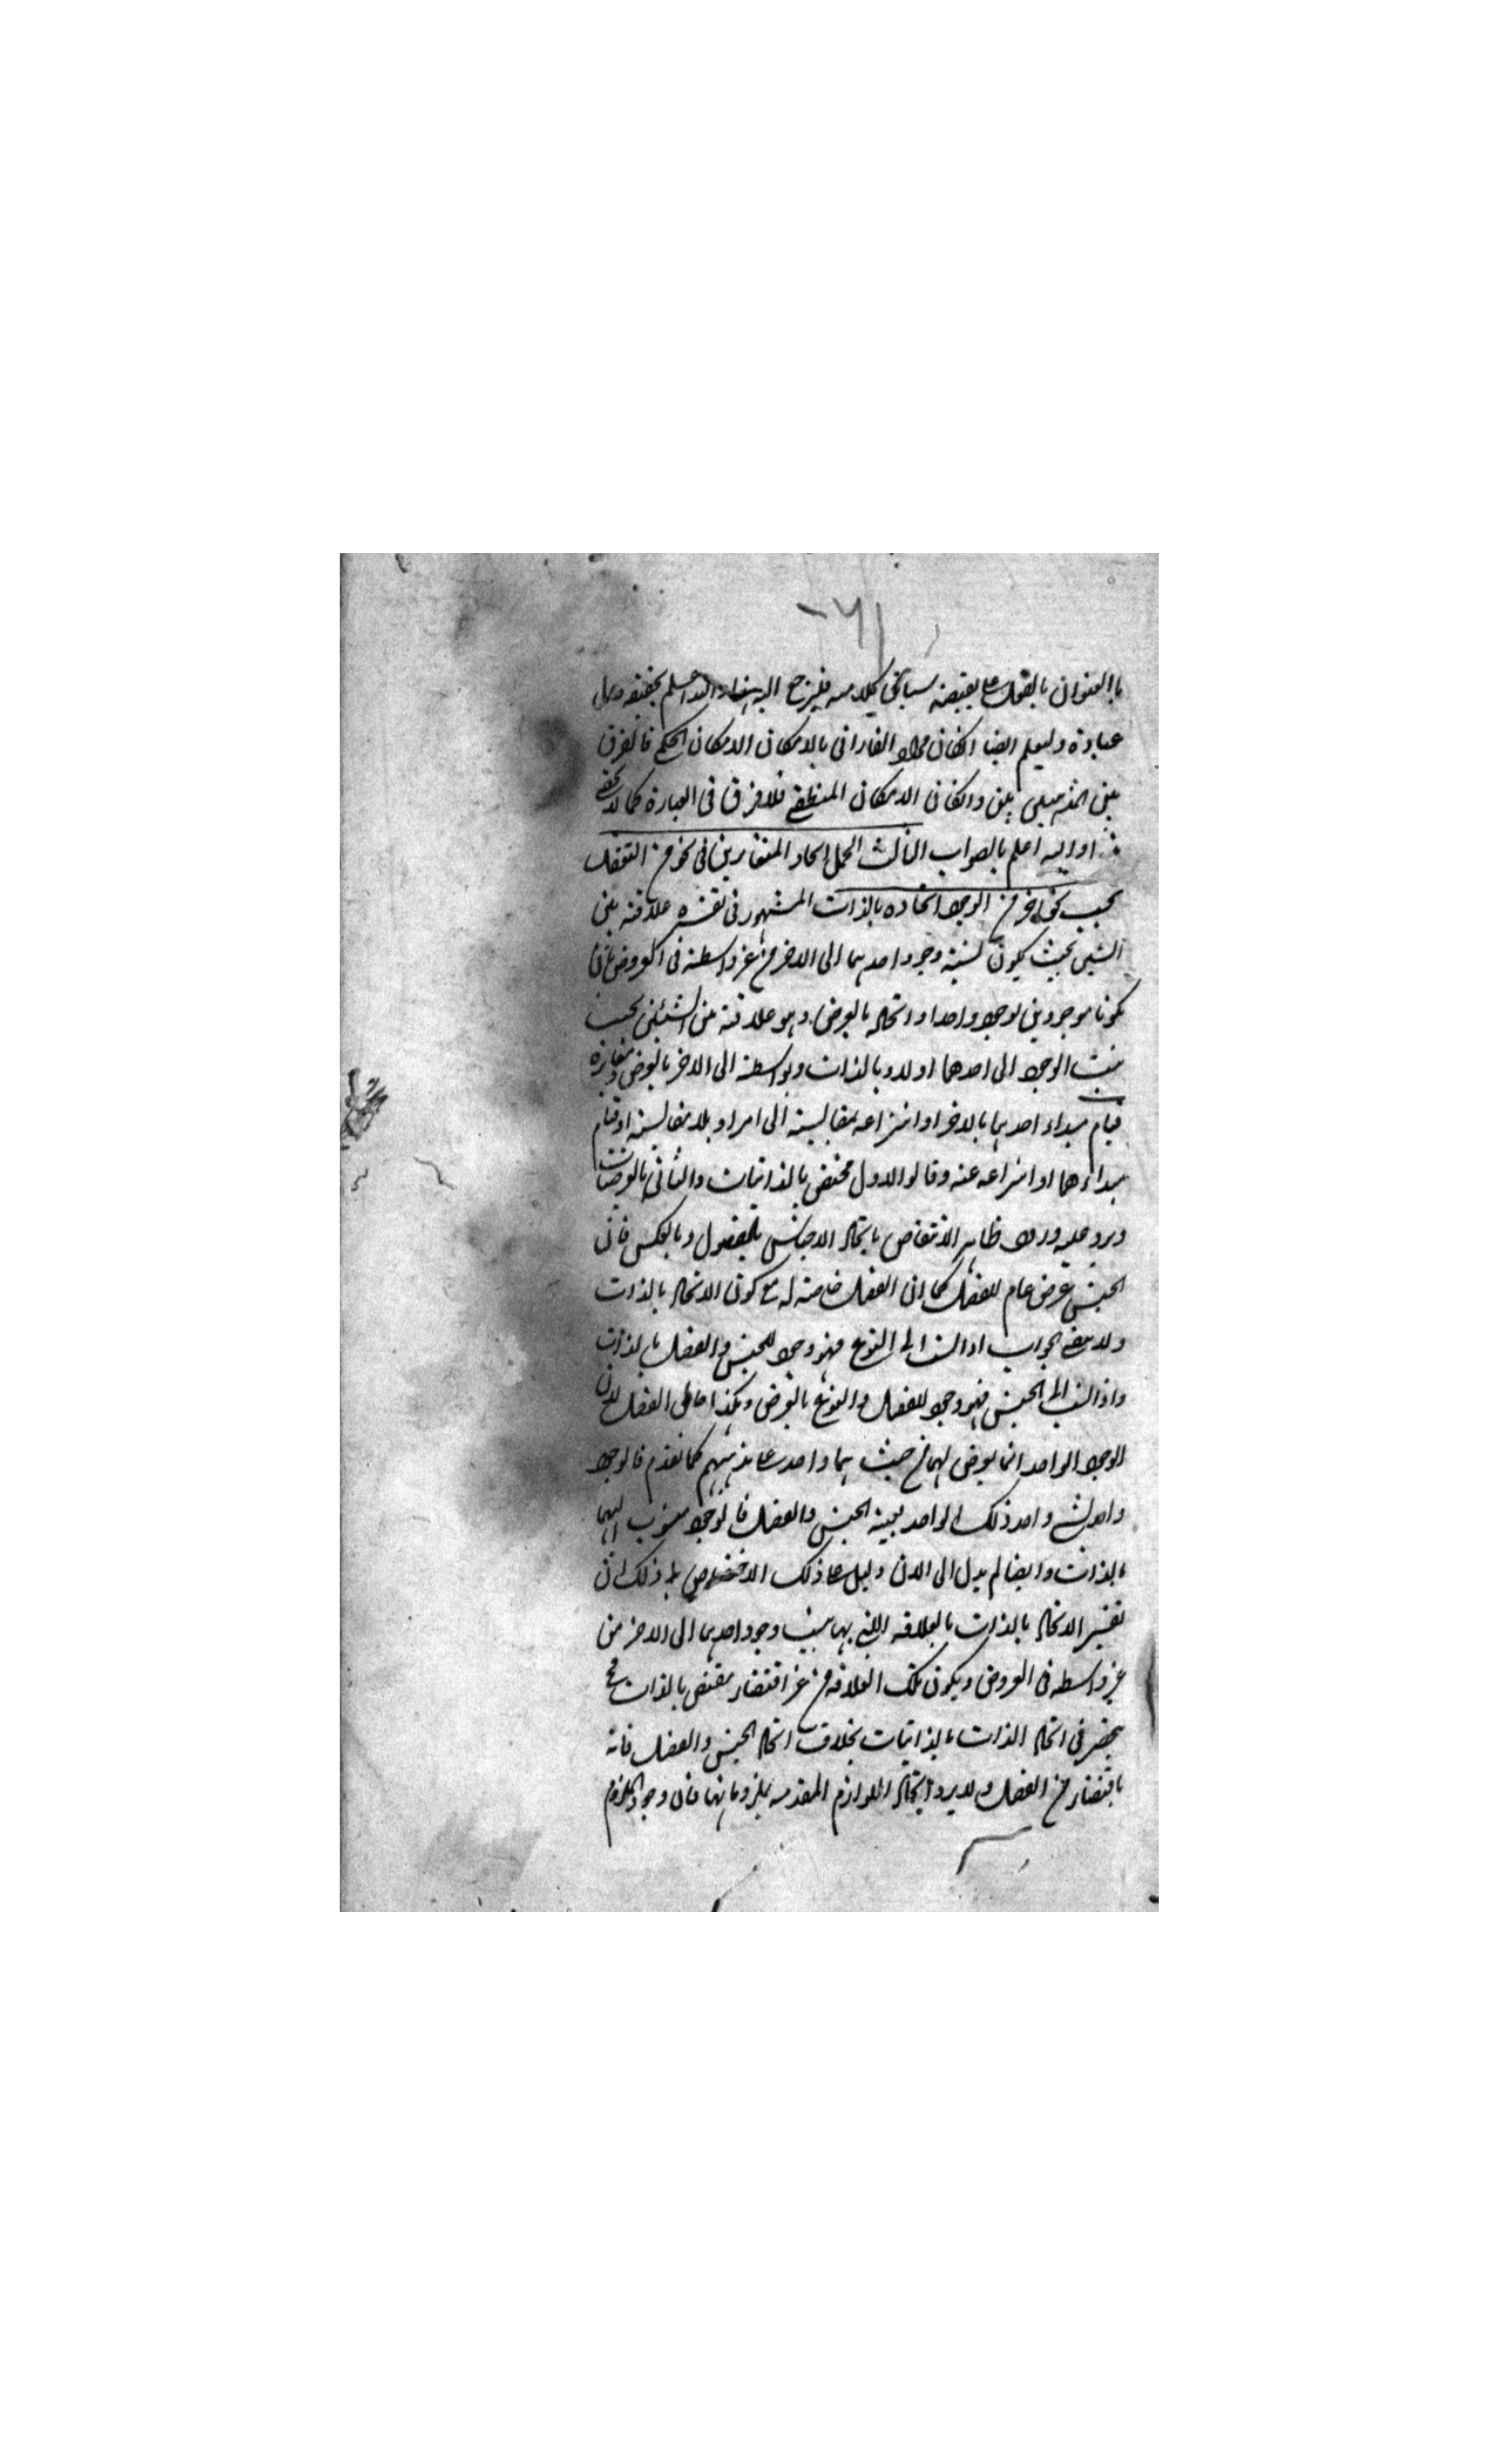 بالعنوان بالفعل على يقتضيه سياق كلامه فليرجع اليه هذا والله اعلم بحقيقة
عباده وليعلم ايضا ان كان مراد الفارابى بالامكان الامكان الحكم فالفرق
بين المذهبين بين وان كان الامكان المنطقى فلا فرق فى العبارة كما لا يخفى
اعلم بالصواب الثالث الحمل اتحاد المتغايرين فى نحو من التعقل
بحسب نحو آخر من الوجود اتحاده بالذات المشهور فى تفسيره علاقة بين
الشيئين بحيث يكون نسبة وجود احدهما الى الآخر من غير واسطة فى العروض بان
يكونا موجودين بوجود واحد او اتحاد بالعرض وهو علاقة من الشيئين بحسب
الوجود الى احدهما اولا وبالذات وبواسطته الى الآخر بالعرض
قيام مبداء احدهما بالاخر او انتزاعه بمقايسة الى امر او بلا مقايسة او قيام
مبداءهما او انتزاعه عنه وقالوا الاول مختص بالذاتيات والثانى بالعرضيات
ويرد عليه ورود ظاهر الانتقاض باتحاد الاجناس بالفصول وبالعكس فان
الجنس عرض عام للفصل كما ان الفصل خاصة له مع كون الاتحاد بالذات
الجواب اذا نسب الى النوع فهو وجود للجنس والفصل بالذات
واذا نسب الى الجنس فهو وجود للفصل والنوع بالعرض وهكذا حال الفصل لان
الوجود الواحد انما يعرض لهما من حيث هما واحد على مذهبهم كما تقدم فالوجود
واحد لشئ واحد ذلك الواحد بعينه الجنس والفصل فالوجود منسوب اليهما
بالذات وايضا لم يدل الى الآن دليل على ذلك الاختصاص بل ذلك ان
تفسير الاتحاد بالذات بالعلاقة التى بها ينسب وجود احدهما الى الآخر من
غير واسطة فى العروض ويكون تلك العلاقة من غير اقتضاء مقتض بالذات فح
ينحصر فى اتحاد الذات بالذاتيات بخلاف اتحاد الجنس والفصل فانه
باقتضاء من الفصل ولا يرد اتحاد اللوازم المقدسه بملزوماتها فان وجود الملزوم